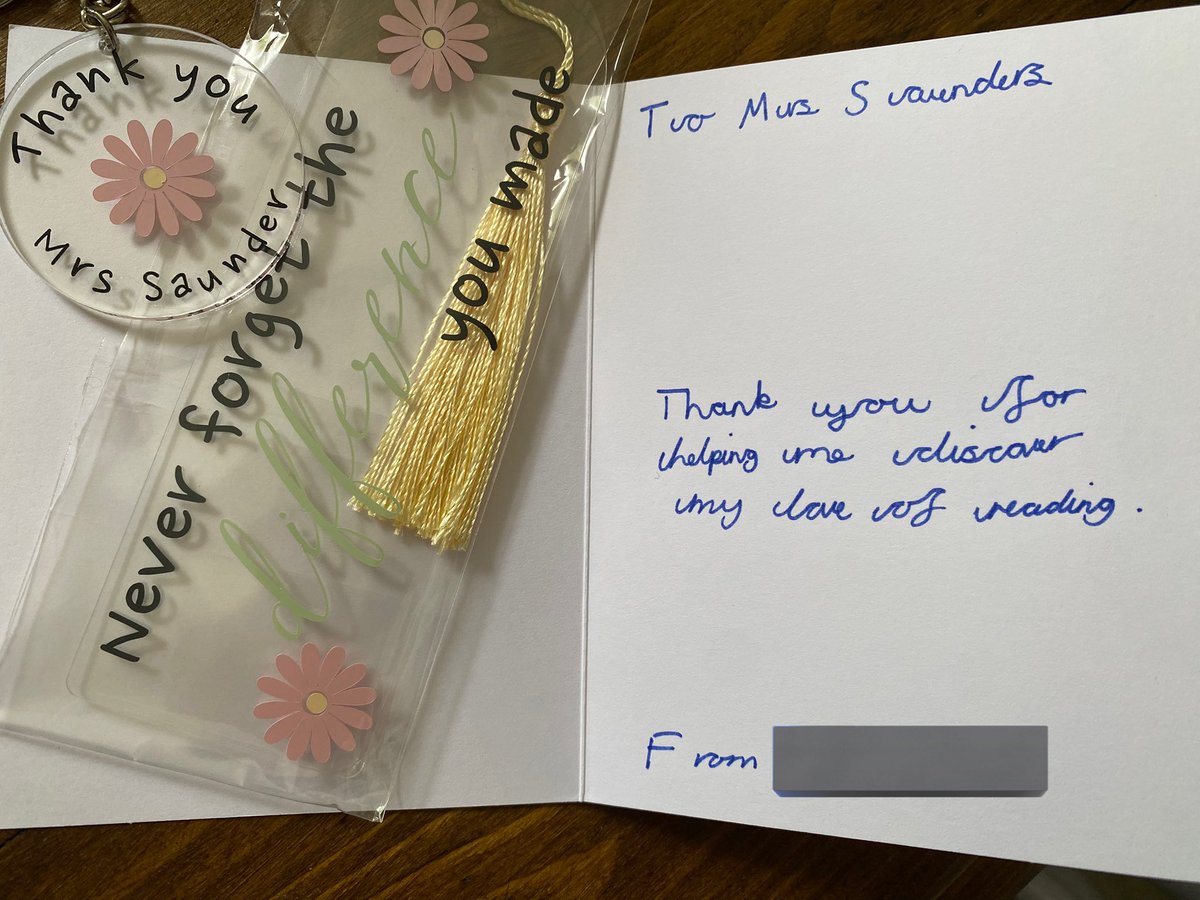 Thank you
Mrs Saunder
Never forget the
difference
you made
To Mrs Saunders
Thank you for
helping me discover
my love of reading.
From